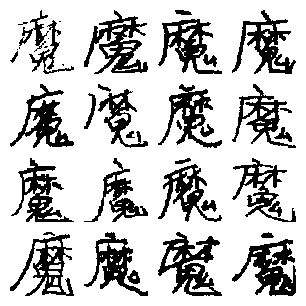 魔魔魔魔
魔魔魔魔
魔魔魔魔
魔魔魔魔